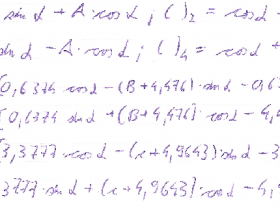 sin α + A · cos α ; ( )₂ = cos α -
sin α - A · cos α ; ( )₄ = cos α +
(0,6374 cos α - (B+4,476) · sin α - 0,6
(0,6374 sin α + (B+4,476) · cos α - 4,
(3,3777 · cos α - (x+4,9643) · sin α - 3
3777 · sin α + (x+4,9643) · cos α - 4,